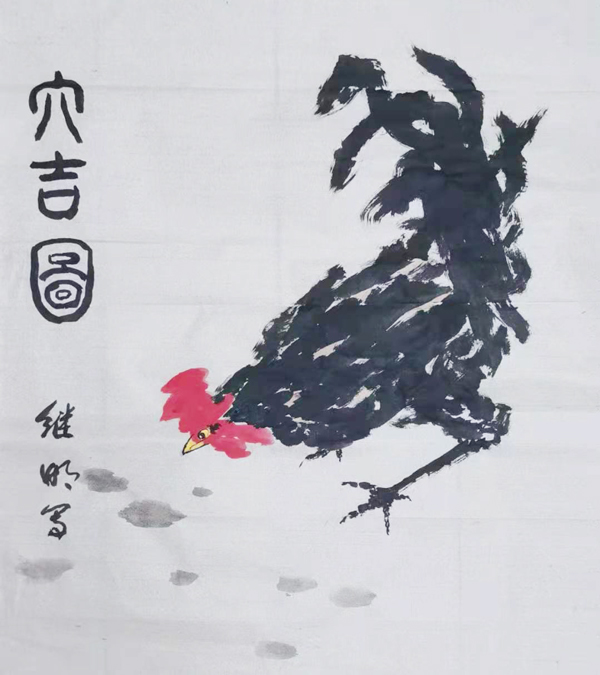 大吉圖
继明写